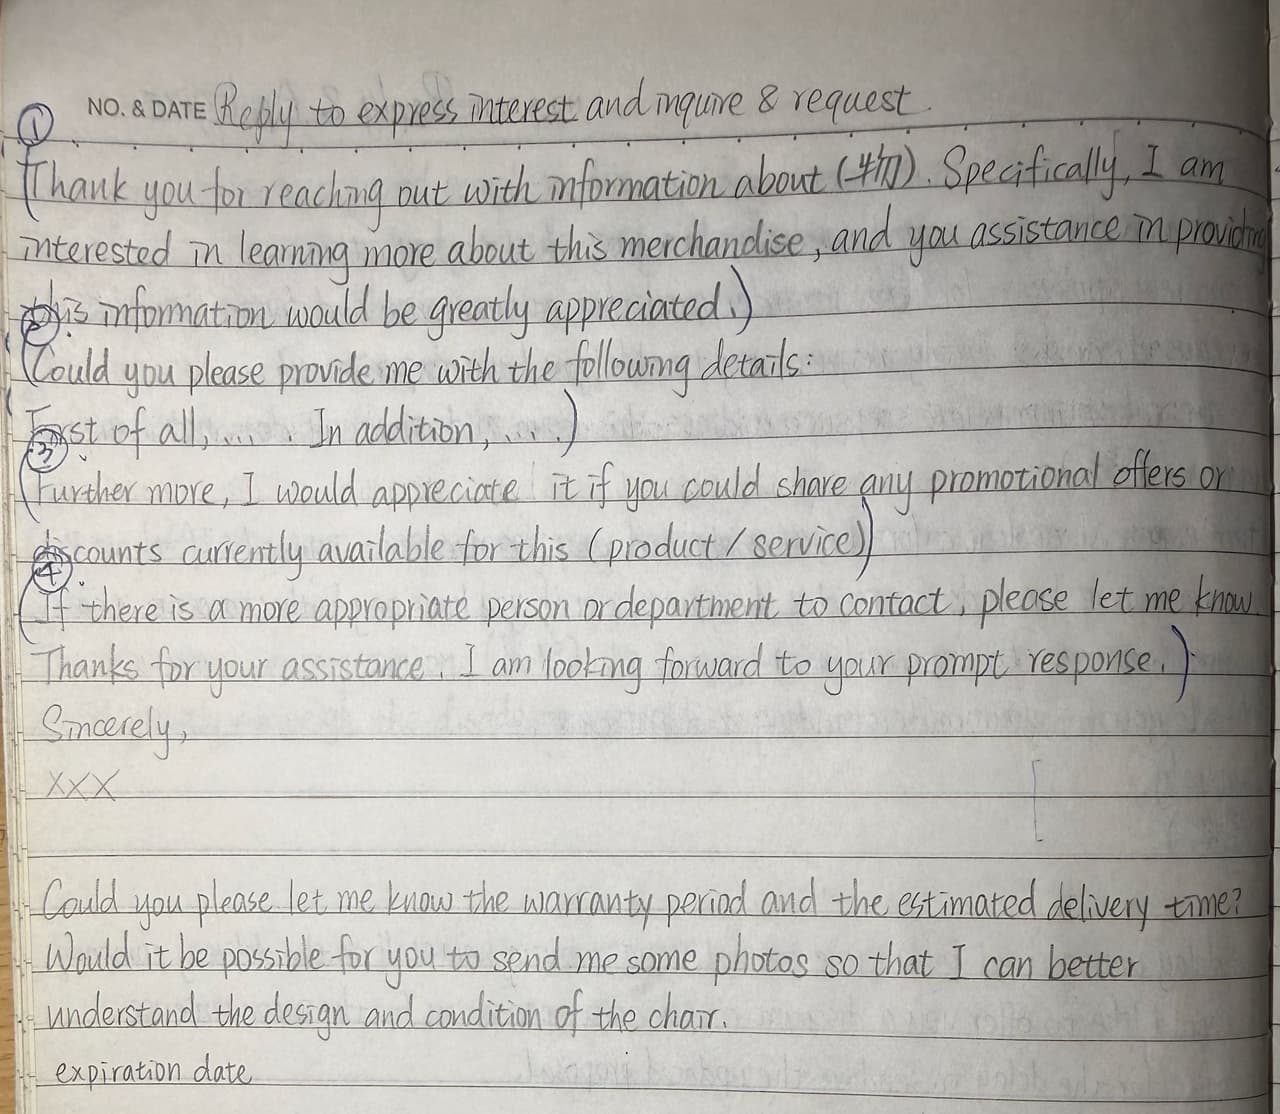 NO. & DATE Reply to express interest and inquire & request.
①
(Thank you for reaching out with information about (사물). Specifically, I am
interested in learning more about this merchandise, and you assistance in providing
this information would be greatly appreciated.)
②
(Could you please provide me with the following details:
First of all, .... . In addition, .... .)
③
(Further more, I would appreciate it if you could share any promotional offers or
discounts currently available for this (product / service))
④
(If there is a more appropriate person or department to contact, please let me know.
Thanks for your assistance. I am looking forward to your prompt response.)
Sincerely,
XXX
Could you please let me know the warranty period and the estimated delivery time?
Would it be possible for you to send me some photos so that I can better
understand the design and condition of the chair.
expiration date